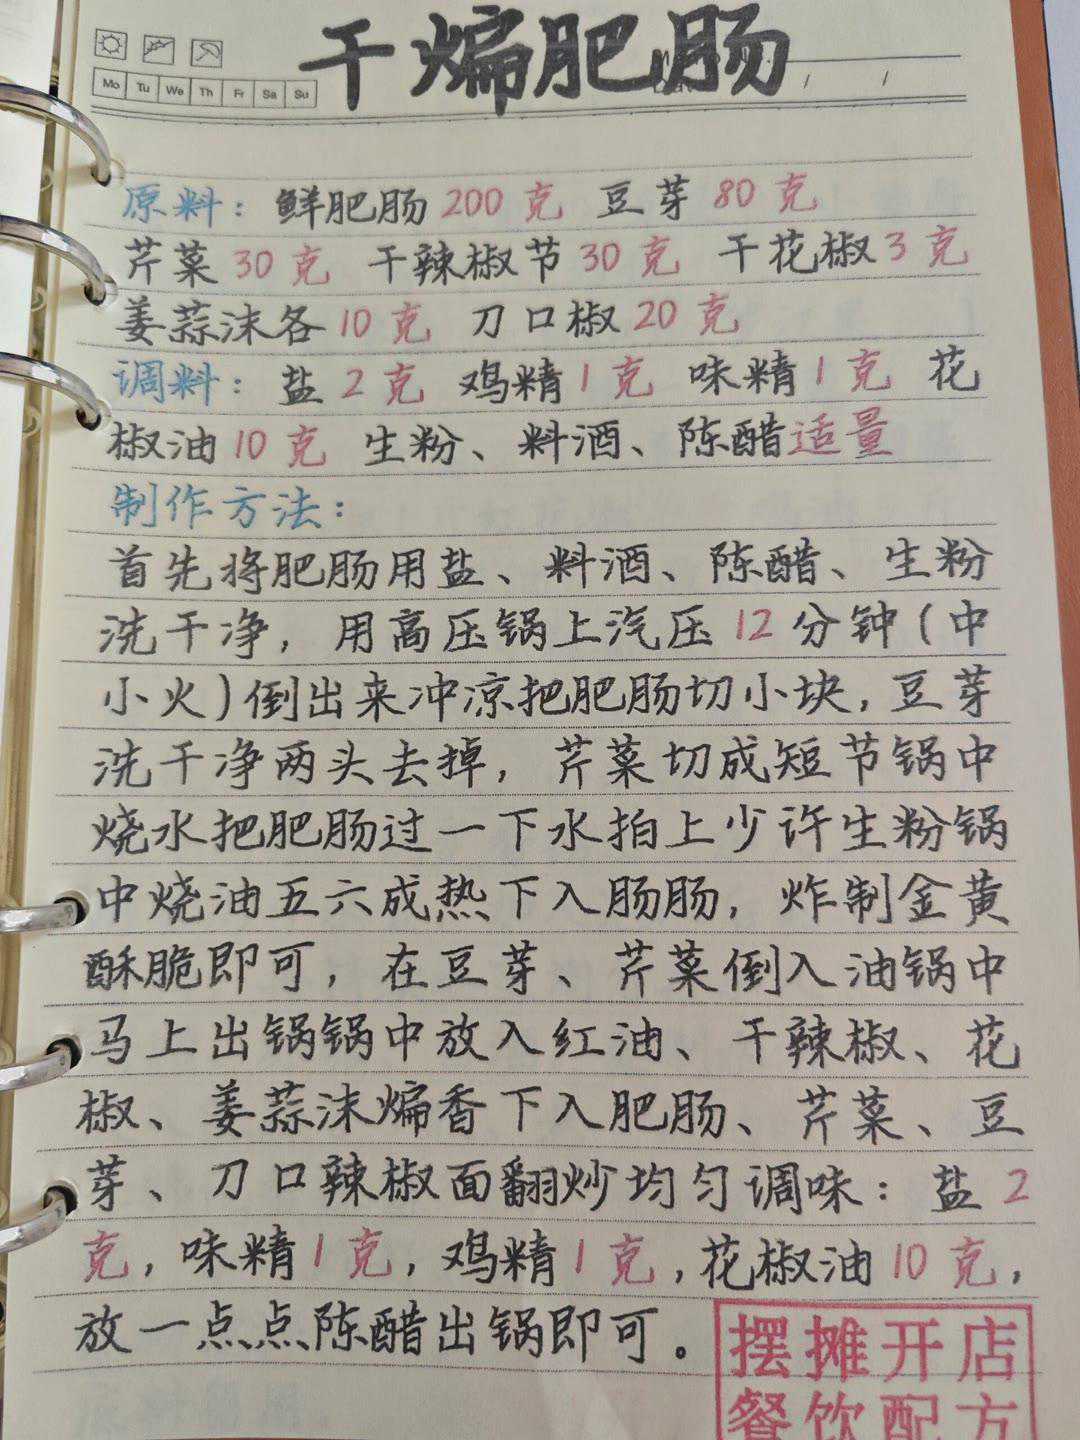 干煸肥肠
Mo Tu We Th Fr Sa Su
原料：鲜肥肠200克 豆芽80克
芹菜30克 干辣椒节30克 干花椒3克
姜蒜沫各10克 刀口椒20克
调料：盐2克 鸡精1克 味精1克 花
椒油10克 生粉、料酒、陈醋适量
制作方法：
首先将肥肠用盐、料酒、陈醋、生粉
洗干净，用高压锅上汽压12分钟（中
小火）倒出来冲凉把肥肠切小块，豆芽
洗干净两头去掉，芹菜切成短节锅中
烧水把肥肠过一下水拍上少许生粉锅
中烧油五六成热下入肠肠，炸制金黄
酥脆即可，在豆芽、芹菜倒入油锅中
马上出锅锅中放入红油、干辣椒、花
椒、姜蒜沫煸香下入肥肠、芹菜、豆
芽、刀口辣椒面翻炒均匀调味：盐2
克，味精1克，鸡精1克，花椒油10克，
放一点点陈醋出锅即可。
摆摊开店
餐饮配方